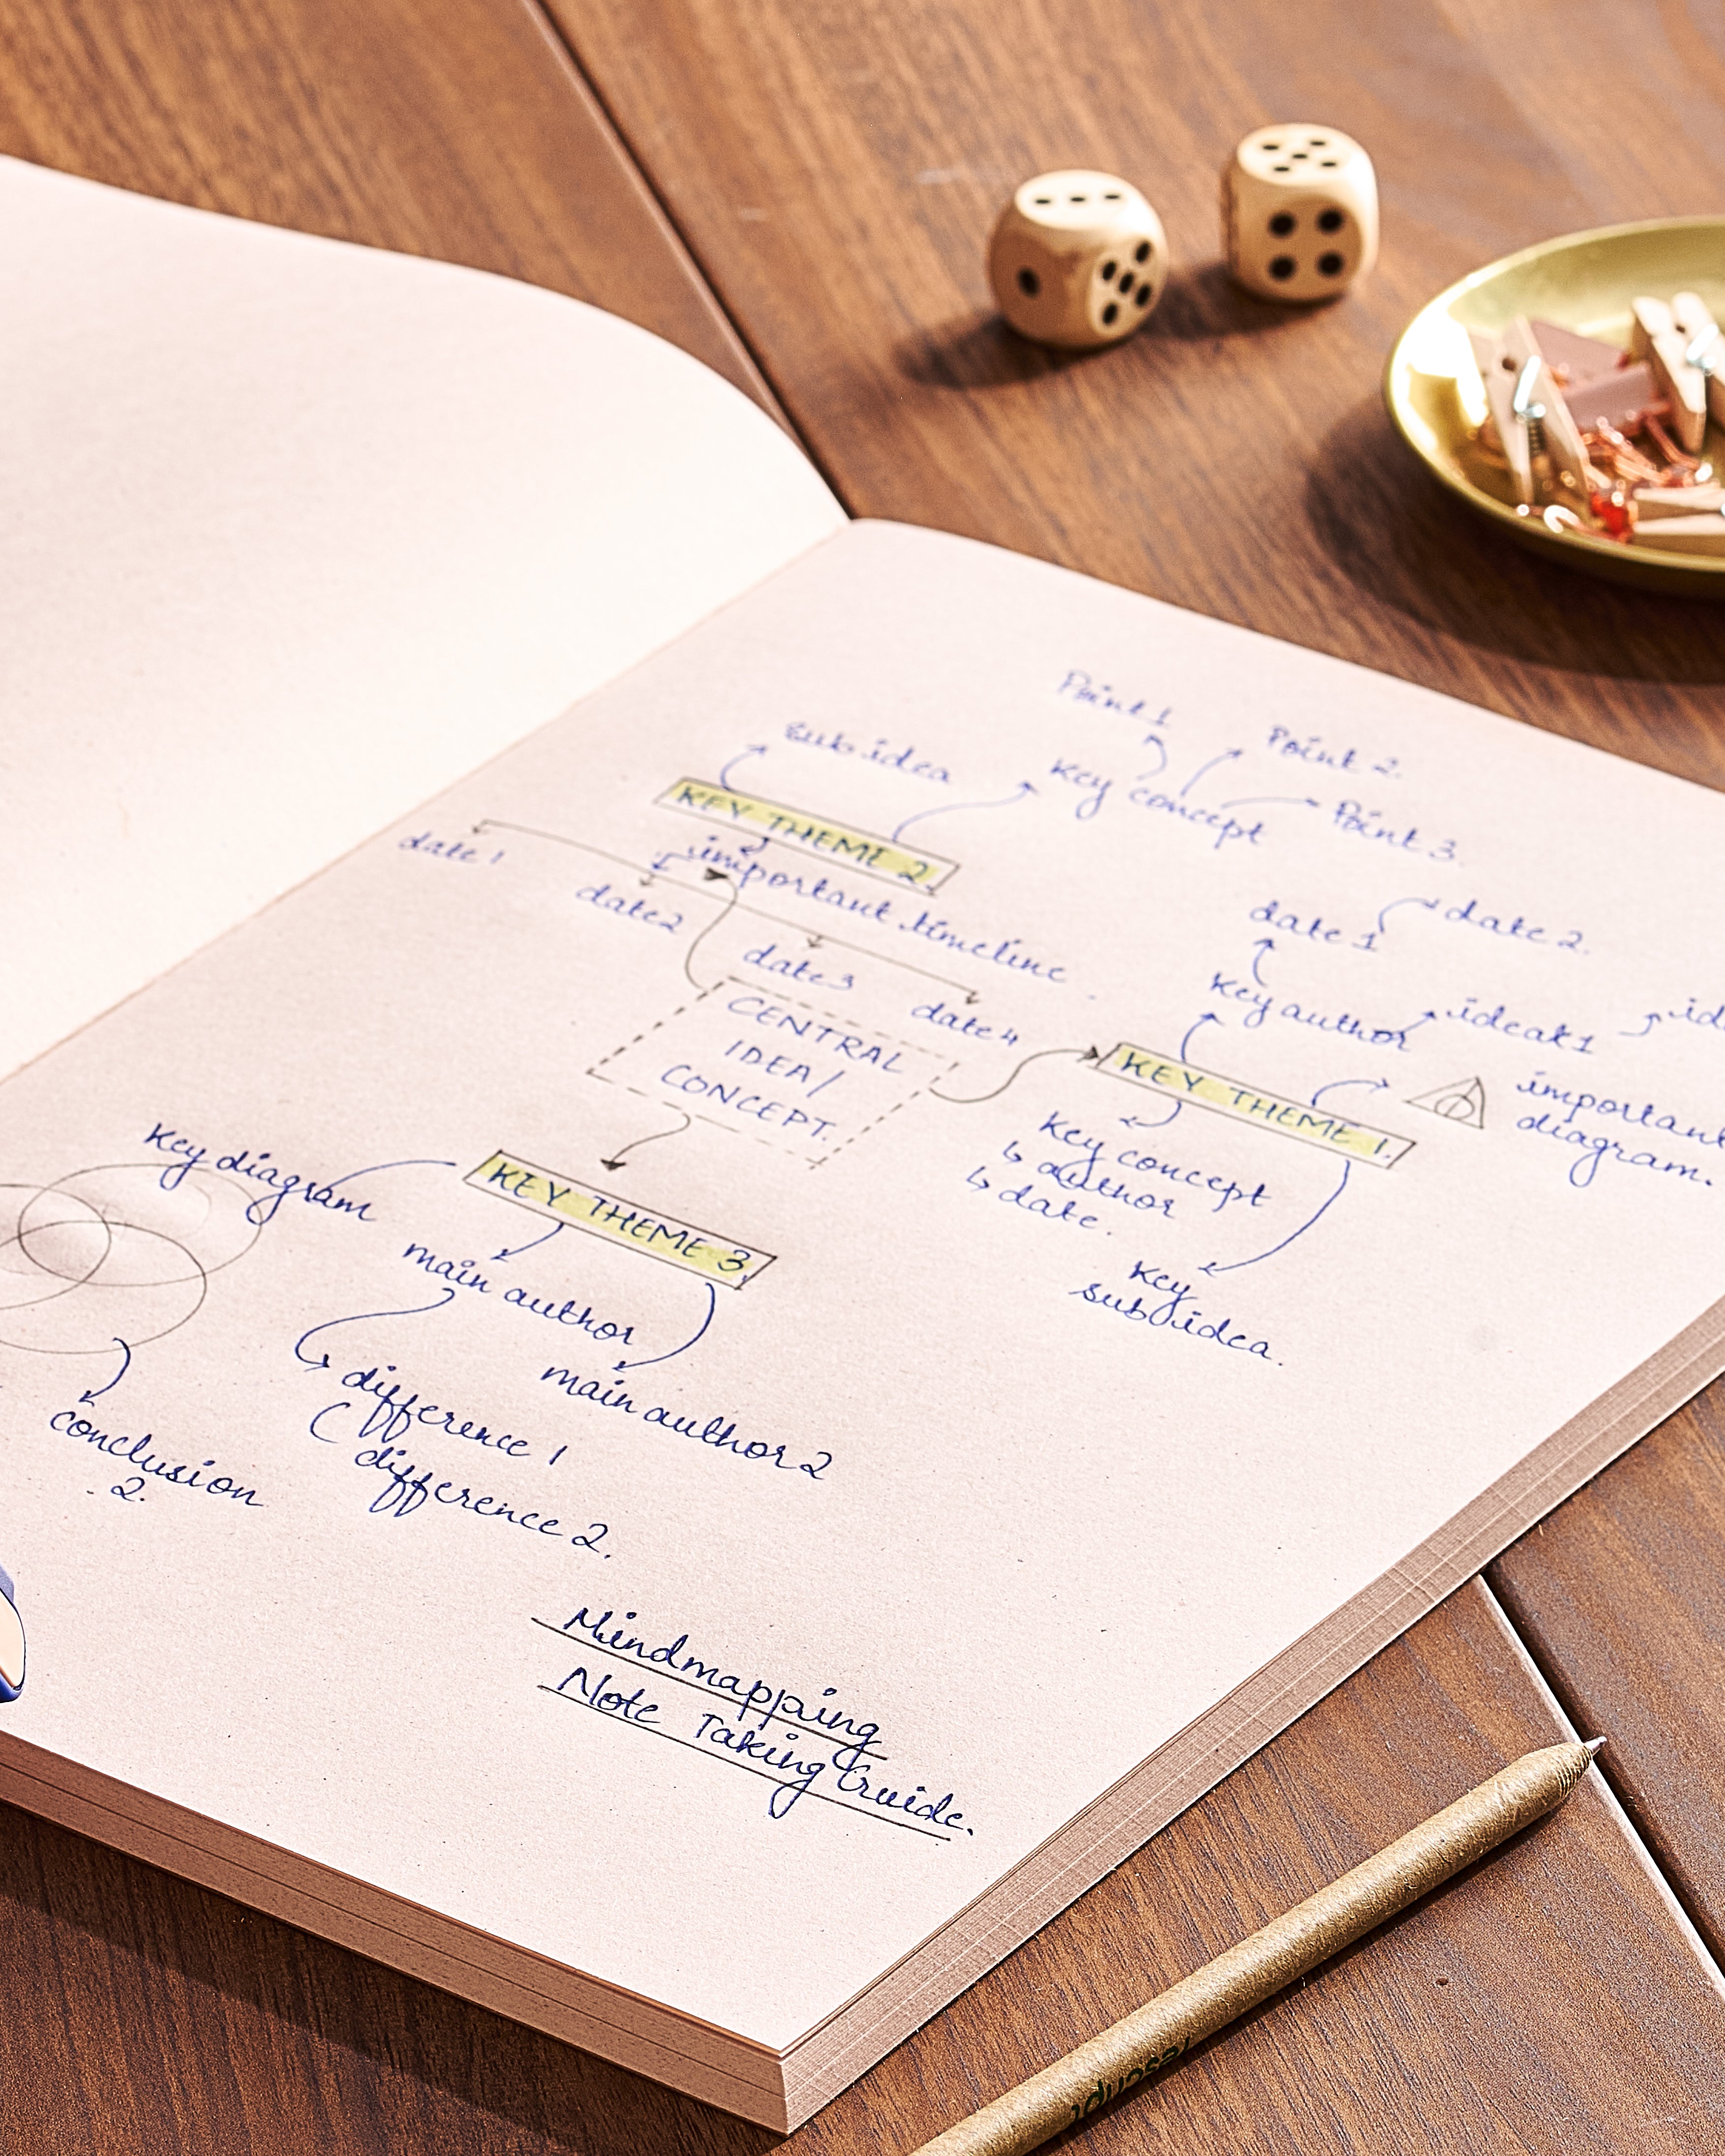 Point 1
Point 2.
Key concept
Point 3.
sub idea
KEY THEME 2.
important timeline
date 1
date 2
date 3
date 4
date 1
date 2.
Key author
CENTRAL
IDEA/
CONCEPT.
KEY THEME 1.
important
diagram.
Key concept
↳ author
↳ date.
Key
sub idea.
Key diagram
KEY THEME 3.
main author
main author 2
difference 1
difference 2.
conclusion
2.
Mindmapping
Note Taking Guide.